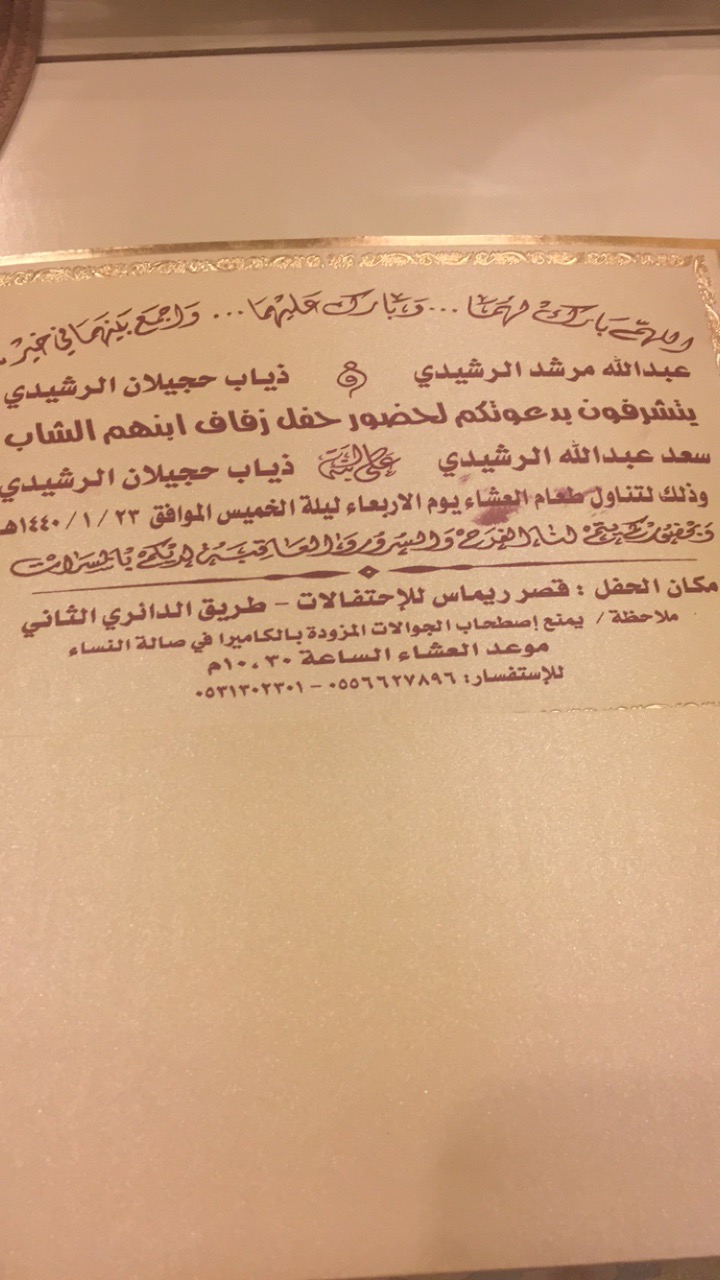 اللهم بارك لهما ... وبارك عليهما ... واجمع بينهما في خير
عبدالله مرشد الرشيدي و ذياب حجيلان الرشيدي
يتشرفون بدعوتكم لحضور حفل زفاف ابنهم الشاب
سعد عبدالله الرشيدي على ابنة ذياب حجيلان الرشيدي
وذلك لتناول طعام العشاء يوم الاربعاء ليلة الخميس الموافق ١٤٤٠/١/٢٣هـ
وبحضوركم يتم لنا الفرح والسرور والعاقبة لديكم بالمسرات
مكان الحفل : قصر ريماس للإحتفالات - طريق الدائري الثاني
ملاحظة / يمنع إصطحاب الجوالات المزودة بالكاميرا في صالة النساء
موعد العشاء الساعة ١٠،٣٠م
للإستفسار: ٠٥٥٦٦٢٧٨٩٦ - ٠٥٣١٣٠٢٣٠١